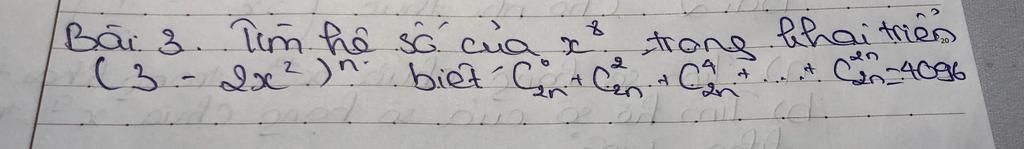 Bài 3. Tìm hệ số của x⁸ trong khai triển
(3 - 2x²)ⁿ. biết C⁰₂ₙ + C²₂ₙ + C⁴₂ₙ + ... + C²ⁿ₂ₙ = 4096